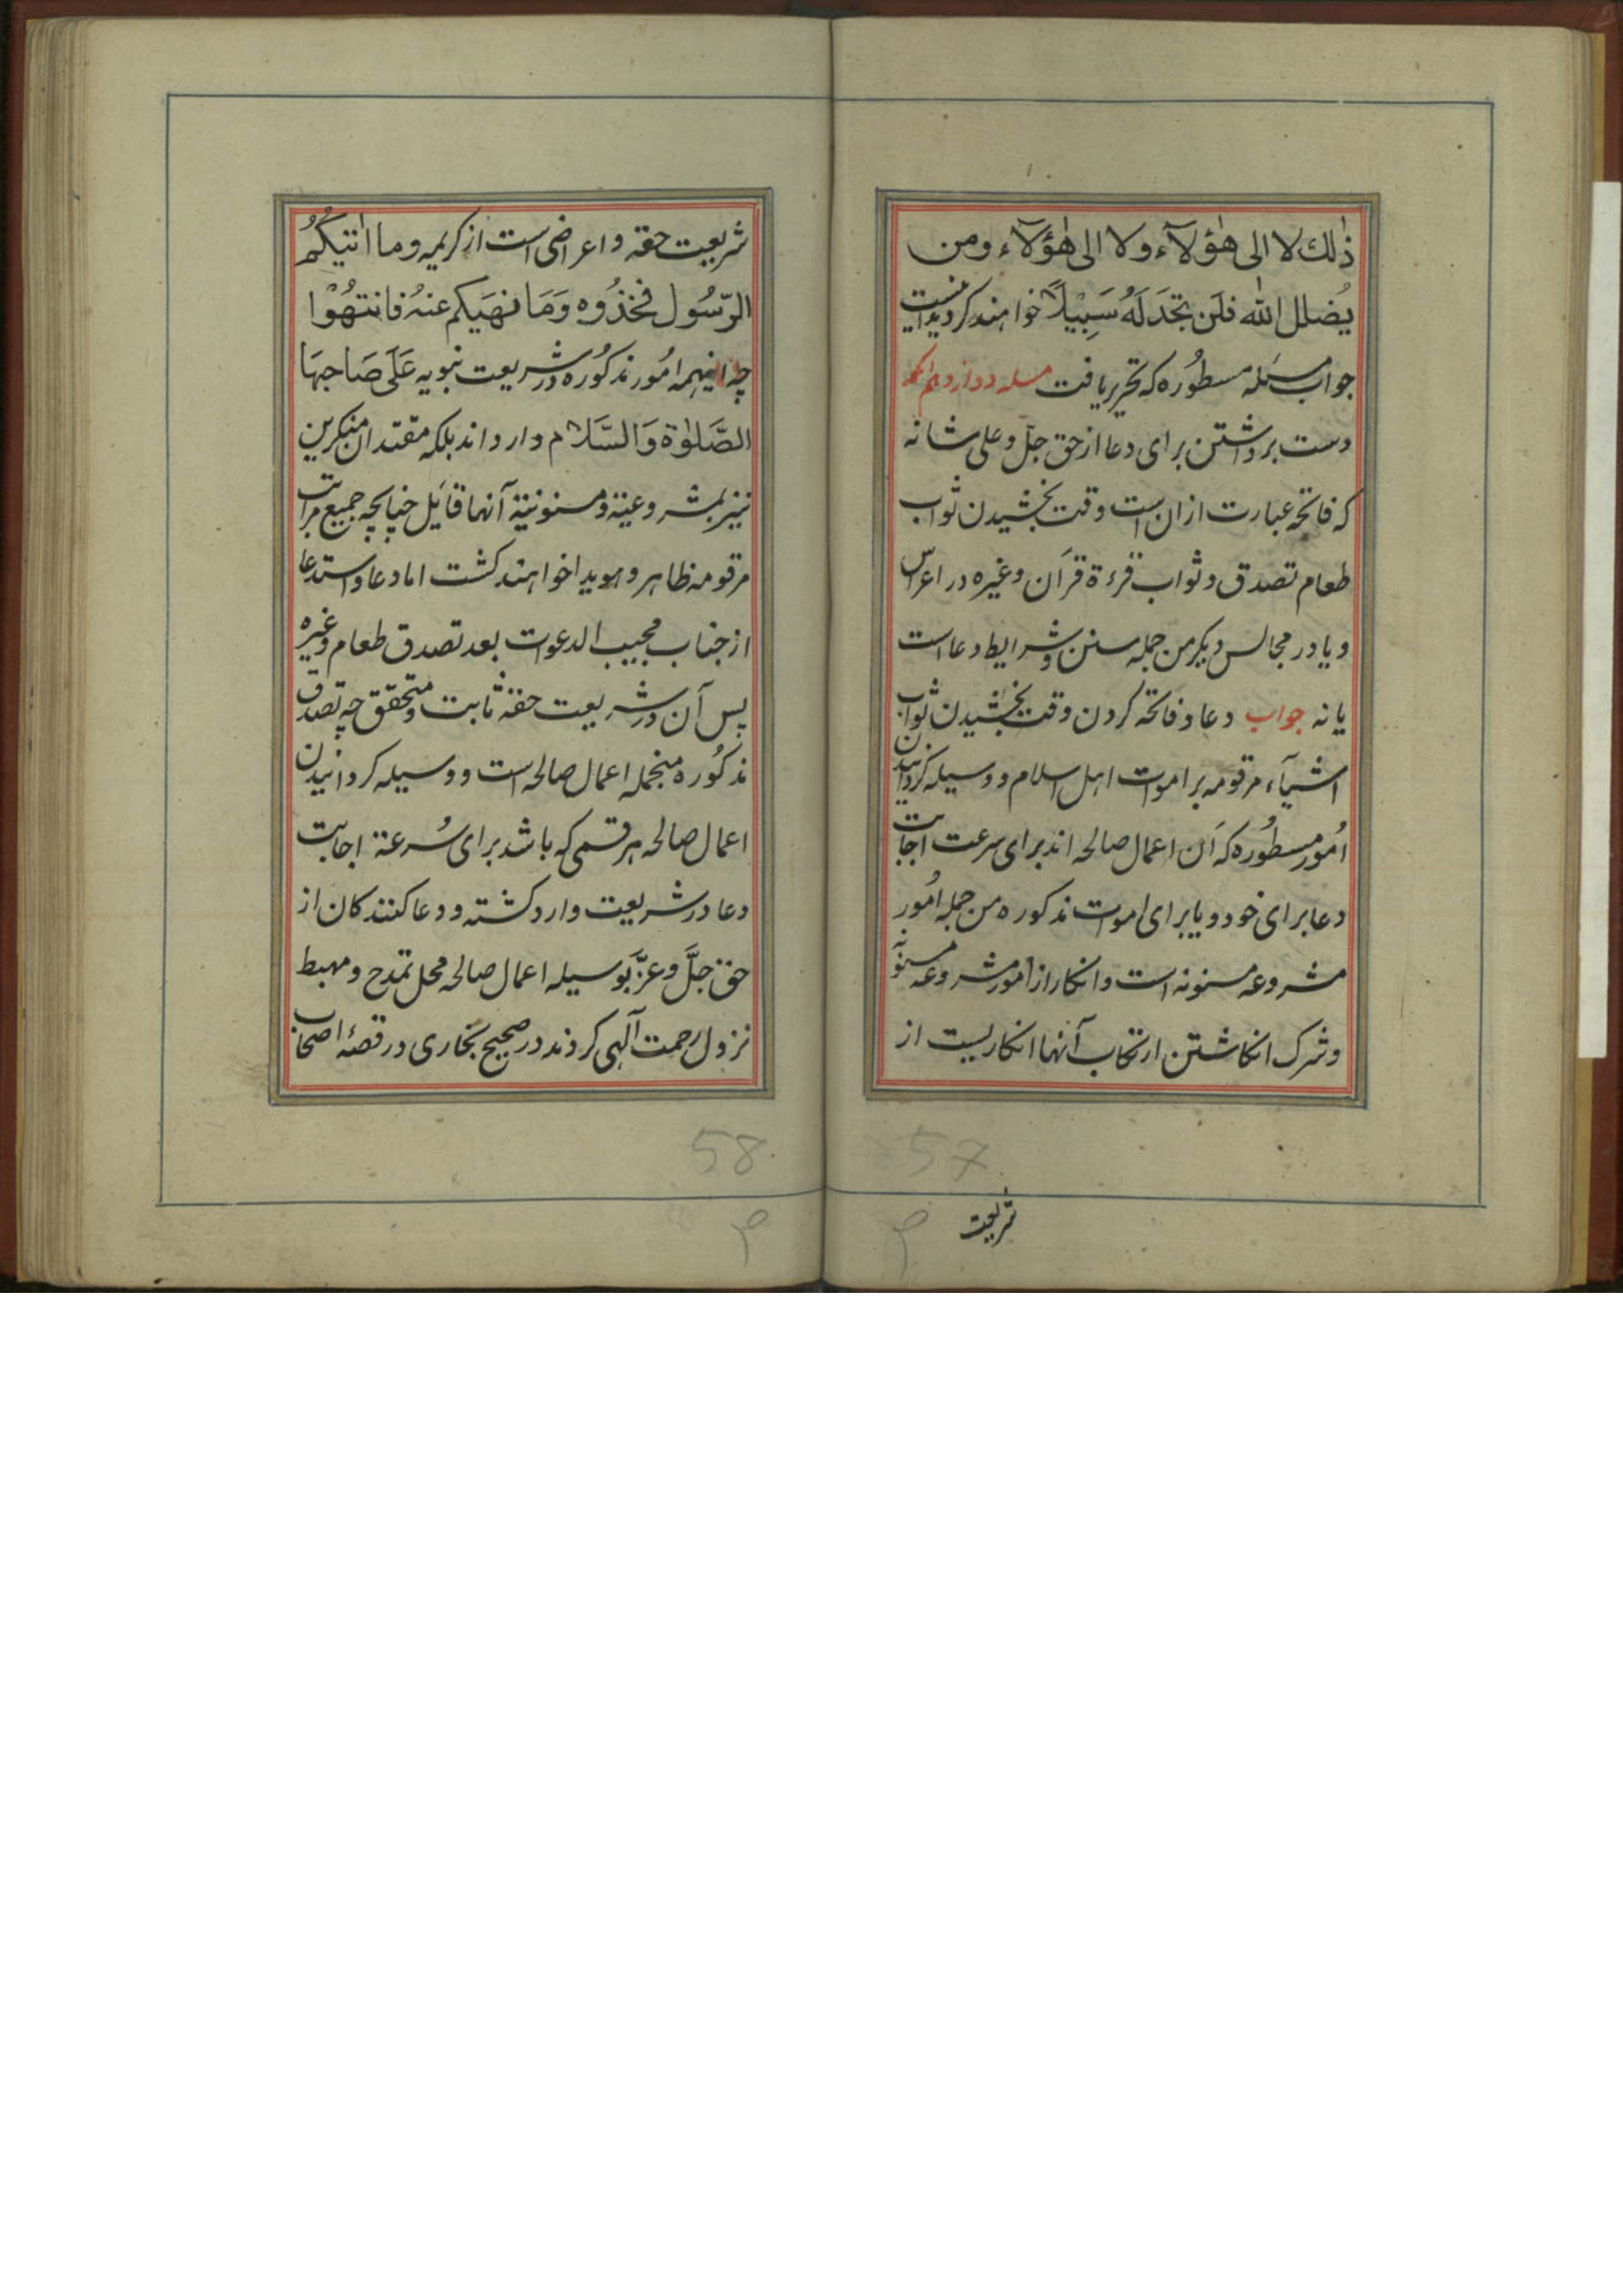 ذٰلك لا الی هٰؤلآء ولا الی هٰؤلآء ومن
یُضلل الله فلَن تجَدَ لَهُ سَبِیْلًا خواهند کردید اینست
جواب مسئله مسطُوره که تحریر یافت مسله دوازدهم انکه
دست برداشتن برای دعا از حق جلّ وعلی شانه
که فاتحه عبارت ازان است وقت بخشیدن ثواب
طعام تصدق وثواب قرءة قرآن وغیره در اعراس
ویا در مجالس دیکر من جمله سنن وشرایط دعا است
یا نه جواب دعا وفاتحه کردن وقت بخشیدن ثواب
اشیآء مرقومه بر اموات اهل اسلام ووسیله کردانیدن
اُمور مسطُوره که آن اعمال صالحه اند برای سرعت اجابت
دعا برای خود ویا برای اموات مذکوره من جمله اُمور
مشروعه مسنونه است وانکار از امور مشروعه مسنونه
وشرک انکاشتن ارتکاب آنها انکاریست از
شریعت
57
شریعت حقه واعراضی است از کریمه وما اٰتیکُمُ
الرّسُول فخذُوه وَمَا نهَیکم عنهُ فانتهُوْا
چه اینهمه اُمور مذکُوره در شریعت نبویه عَلَی صَاحبهَا
الصَّلوٰة وَالسَّلام وارد اند بلکه مقتدان منکرین
نیز بمشروعیة ومسنونیة آنها قایل چنانچه جمیع مراتب
مرقومه ظاهر وهویدا خواهند کشت اما دعا واستدعا
از جناب مجیب الدعوات بعد تصدق طعام وغیره
پس آن در شریعت حقه ثابت ومتحقق چه تصدق
مذکُوره منجمله اعمال صالحه است ووسیله کردانیدن
اعمال صالحه هر قسمی که باشد برای سُرعة اجابت
دعا در شریعت وارد کشته ودعا کنندکان از
حق جلَّ وعزّ بوسیله اعمال صالحه محل تمدح ومهبط
نزول رحمت آلهی کردند در صحیح بخاری در قصهٔ اصحاب
58